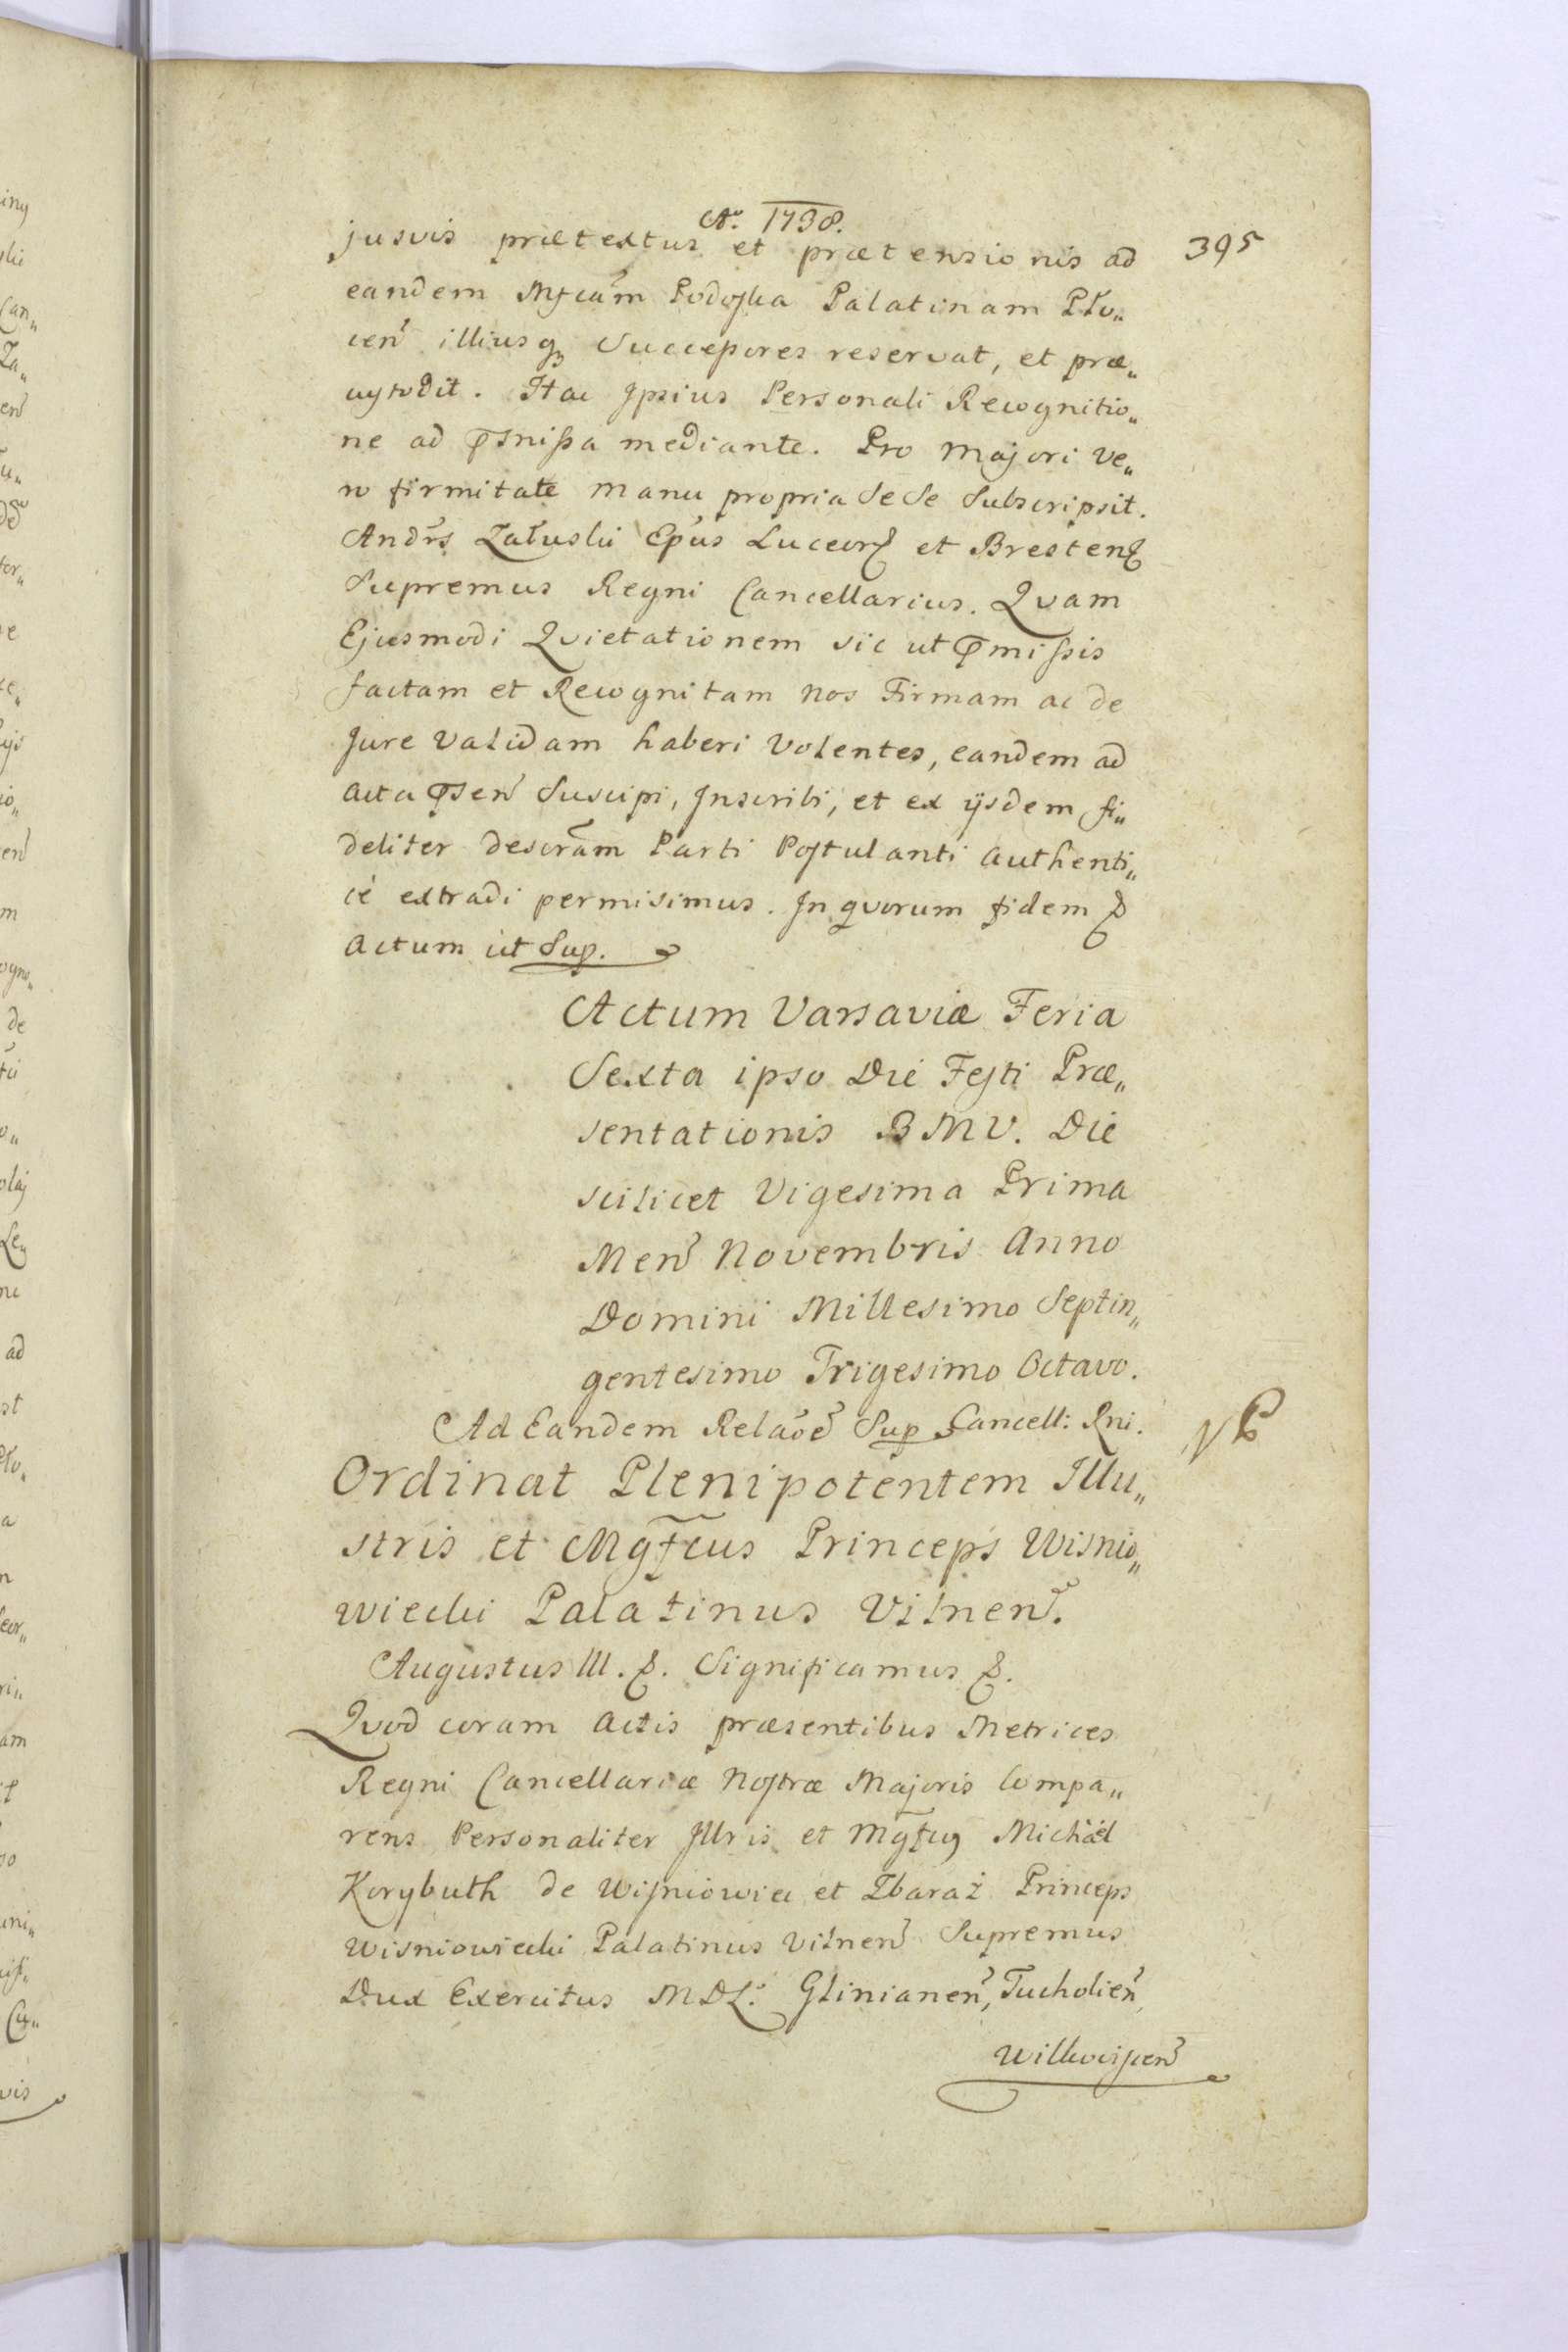 Aō. 1738.
395
jusvis prætextus et prætensionis ad
eandem Mfcām Podoska Palatinam Pło„
cen̄ illiusq́ Successores reservat, et præ„
custodit. Hac Ipsius Personali Recognitio„
ne ad p̄missa mediante. Pro Majori ve„
ro firmitate manu propria Se Se Subscripsit.
Andr̄s Załuski Ep̄us Luceor et Bresten
Supremus Regni Cancellarius. Qvam
Ejusmodi Qvietationem sic ut p̄missis
factam et Recognitam Nos Firmam ac de
Jure Validam haberi Volentes, eandem ad
Acta p̄sen̄ Suscipi, Inscribi, et ex ijsdem fi„
deliter descrām Parti Postulanti authenti„
cè extradi permisimus. In qvorum fidem &
Actum ut Sup.
Actum Varsaviæ Feria
Sexta ipso Die Festi Præ„
sentationis BMV. Die
scilicet Vigesima Prima
Men̄ Novembris Anno
Domini Millesimo Septin„
gentesimo Trigesimo Octavo.
Ad Eandem Relaōē Sup Cancell: Rni.
Ordinat Plenipotentem Illu„
stris et Mgfcus Princeps Wisnio„
wiecki Palatinus Vilnen̄.
Augustus III. &. Significamus &.
Qvod coram Actis præsentibus Metrices
Regni Cancellariæ Nostræ Majoris Compa„
rens Personaliter Illris et Mgfcus Michäel
Korybuth de Wisniowiec et Zbaraż Princeps
Wisniowiecki Palatinus Vilnen̄ Supremus
Dux Exercitus MDL: Glinianen̄, Tucholien̄,
Wilkoviscen̄